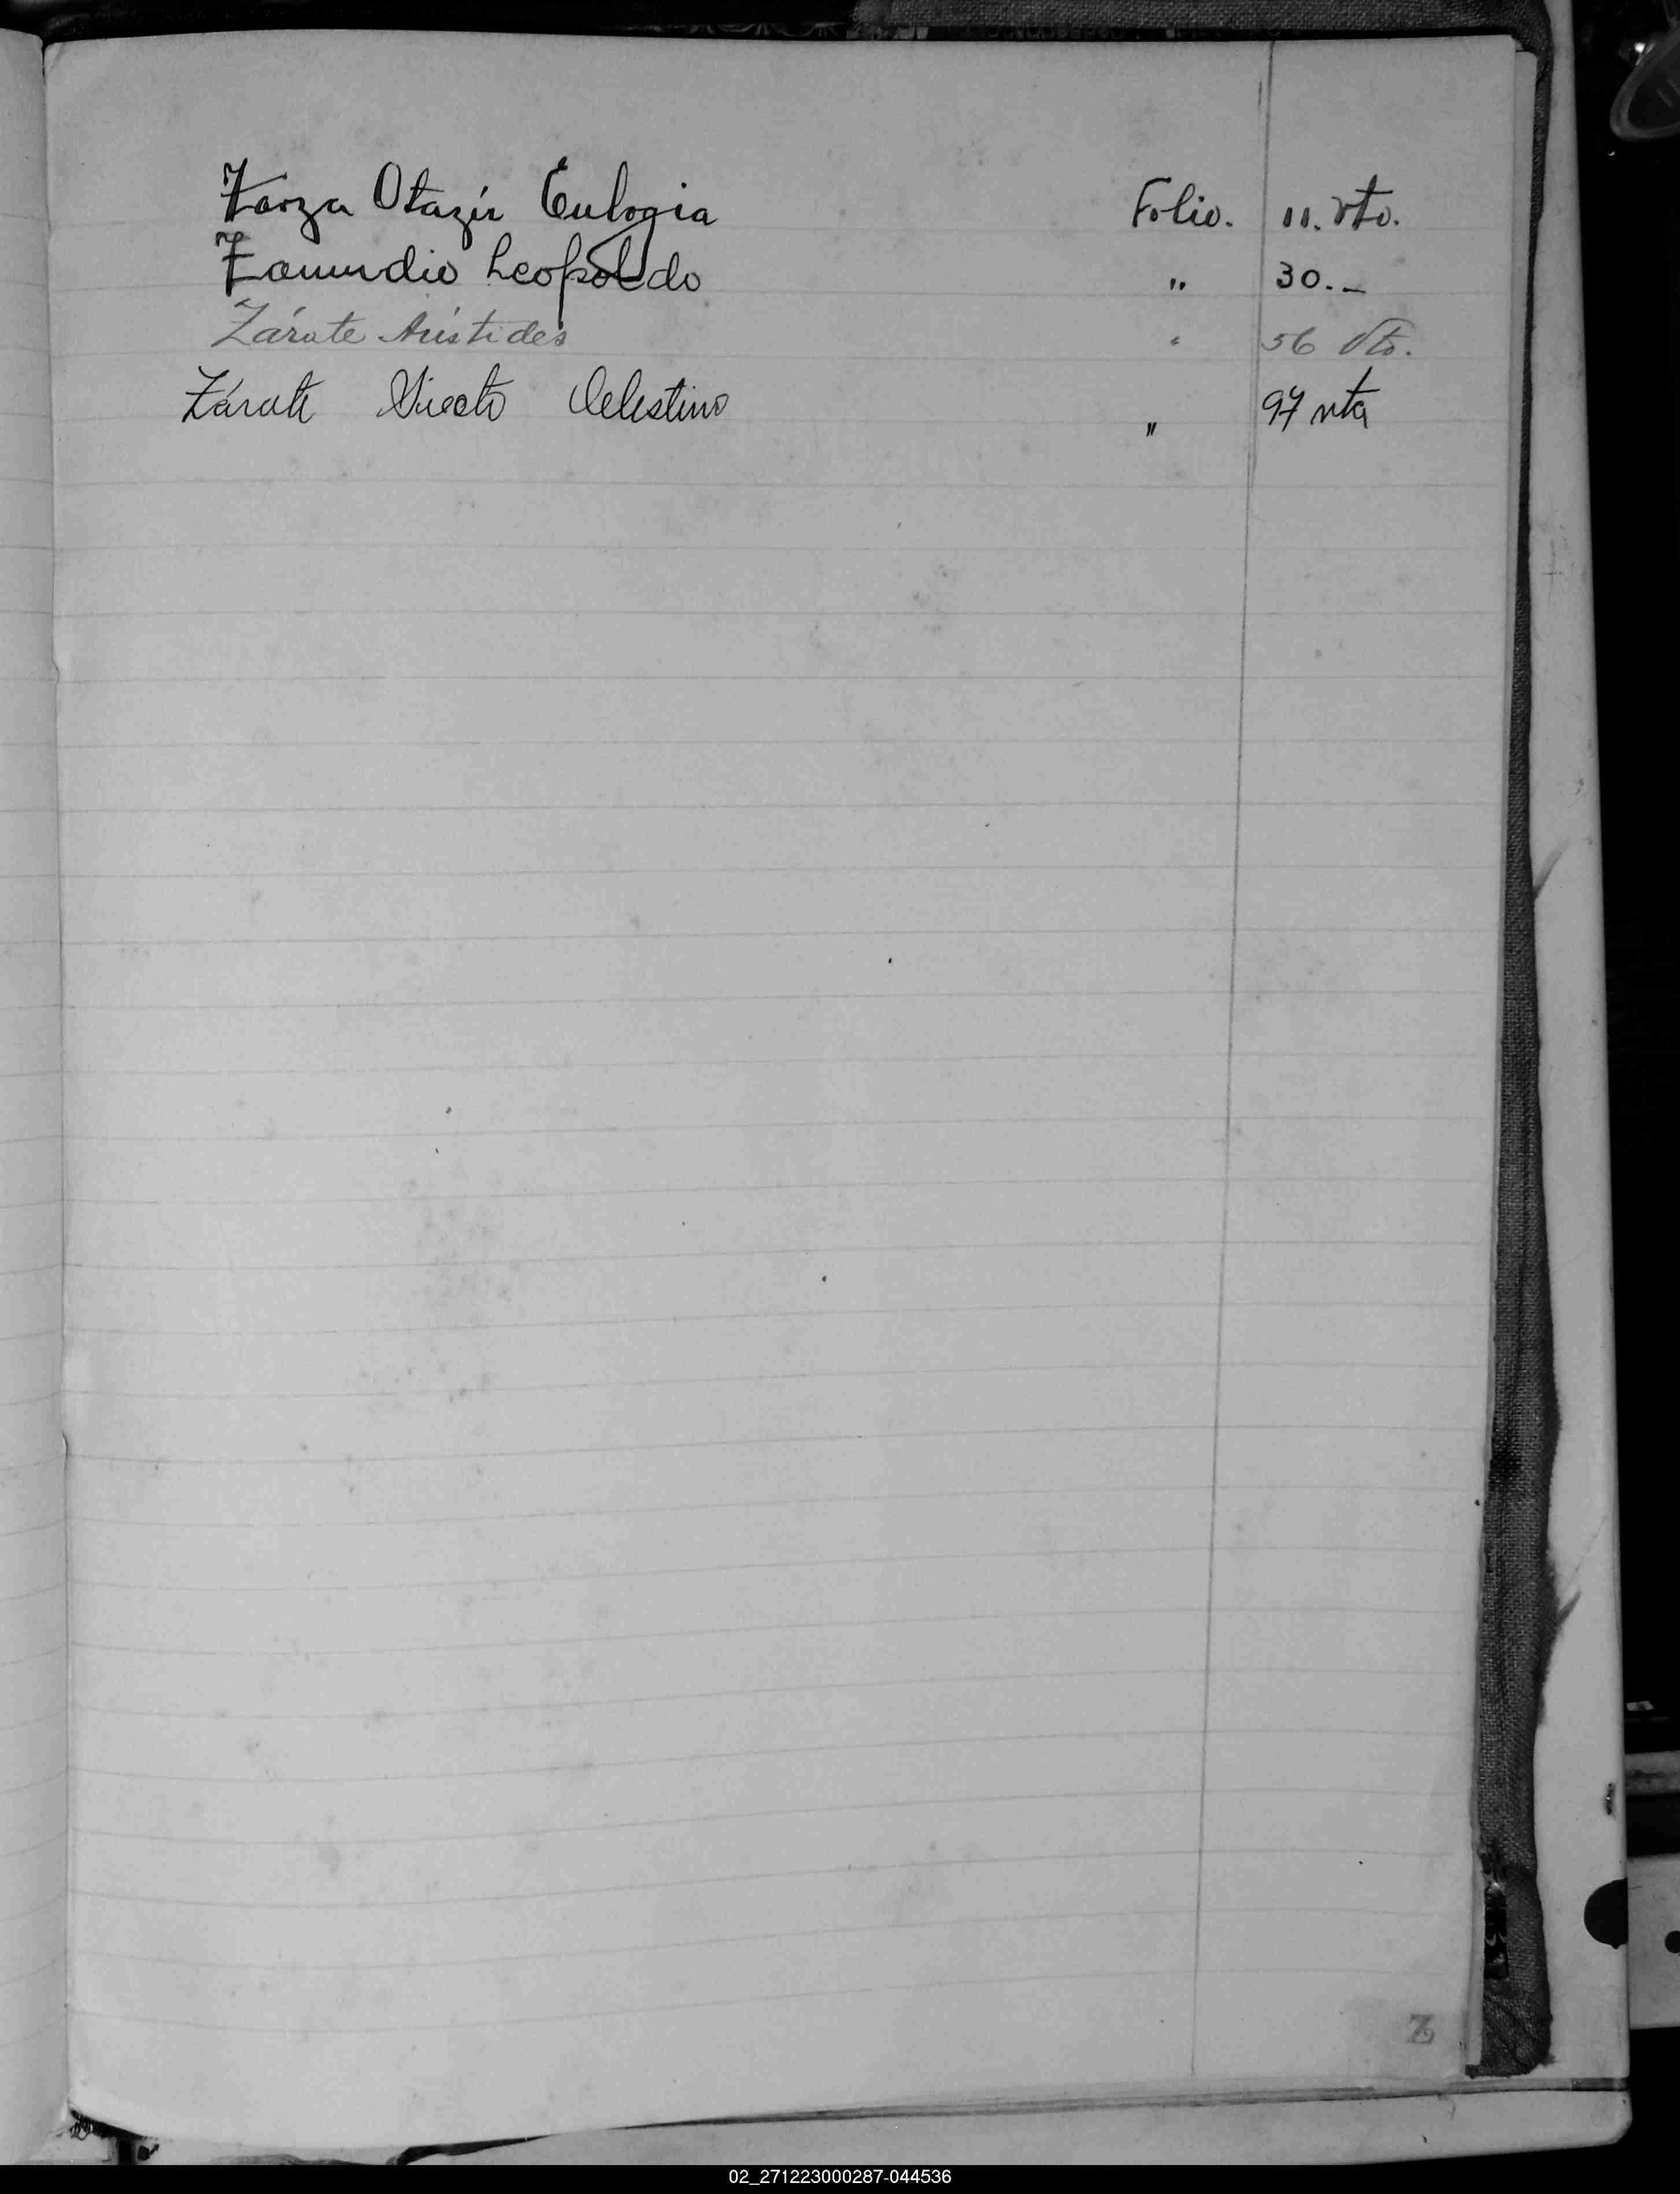 Zarza Otazú Eulogia Folio. 11. vto.
Zamudio Leopoldo " 30.-
Zárate Arístides " 56 Vto.
Zárate Celestino " 97 vta
Z
02_271223000287-044536